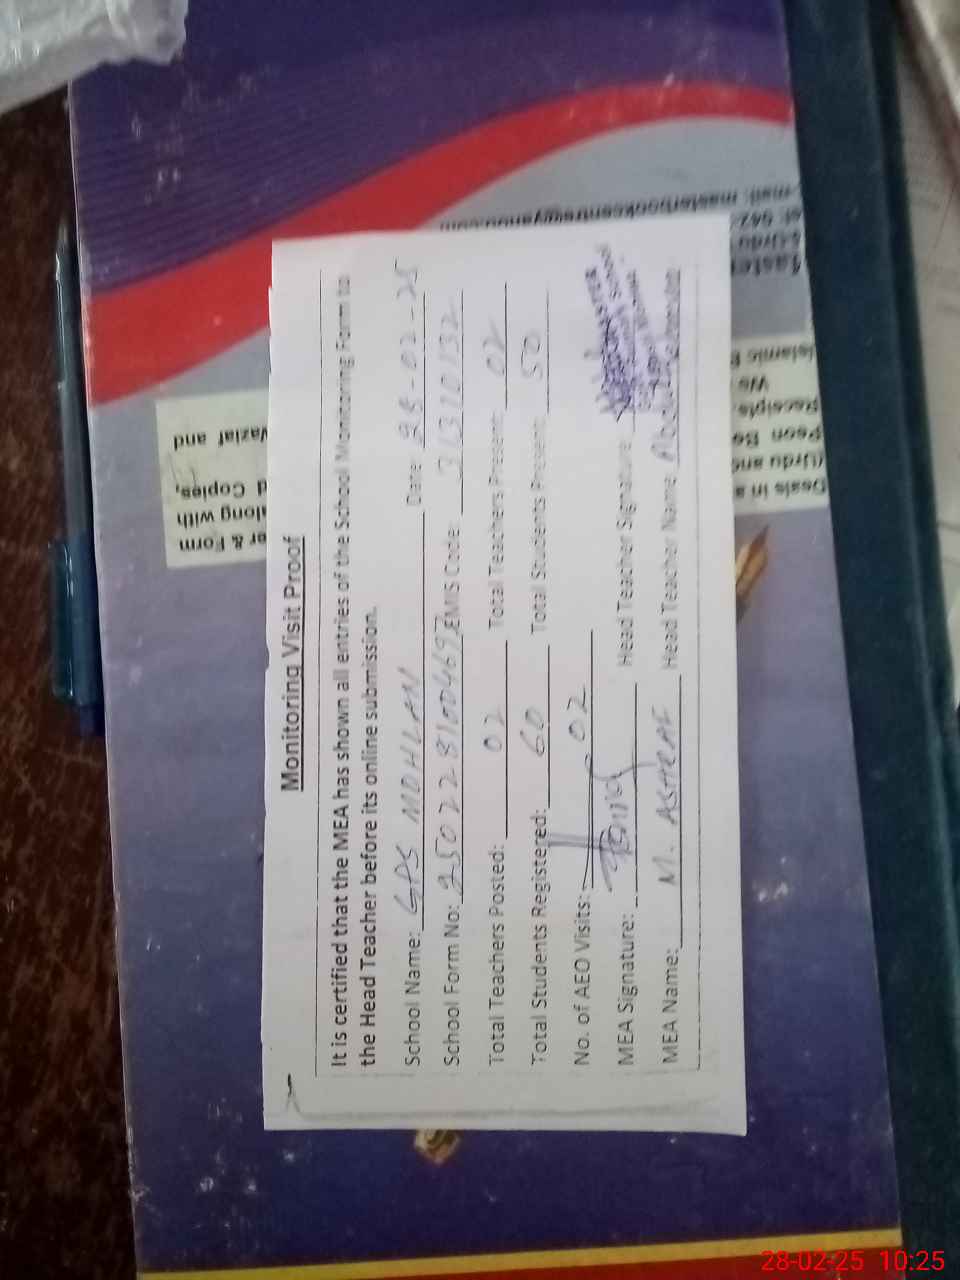 Monitoring Visit Proof
It is certified that the MEA has shown all entries of the School Monitoring Form to
the Head Teacher before its online submission.
School Name: GPS MOHLAN Date: 28-02-25
School Form No: EMIS Code: 31310132
Total Teachers Posted: 02 Total Teachers Present: 02
Total Students Registered: 60 Total Students Present: 50
No. of AEO Visits: 02
MEA Signature: Head Teacher Signature:
MEA Name: M. ASHRAF Head Teacher Name
Vaziaf and
d Copies,
along with
er & Form
mail: masterbookcentre@yahoo.com
Islamic B
We
Receipts,
Peon Bo
(Urdu and
Deals in a
28-02-25 10:25